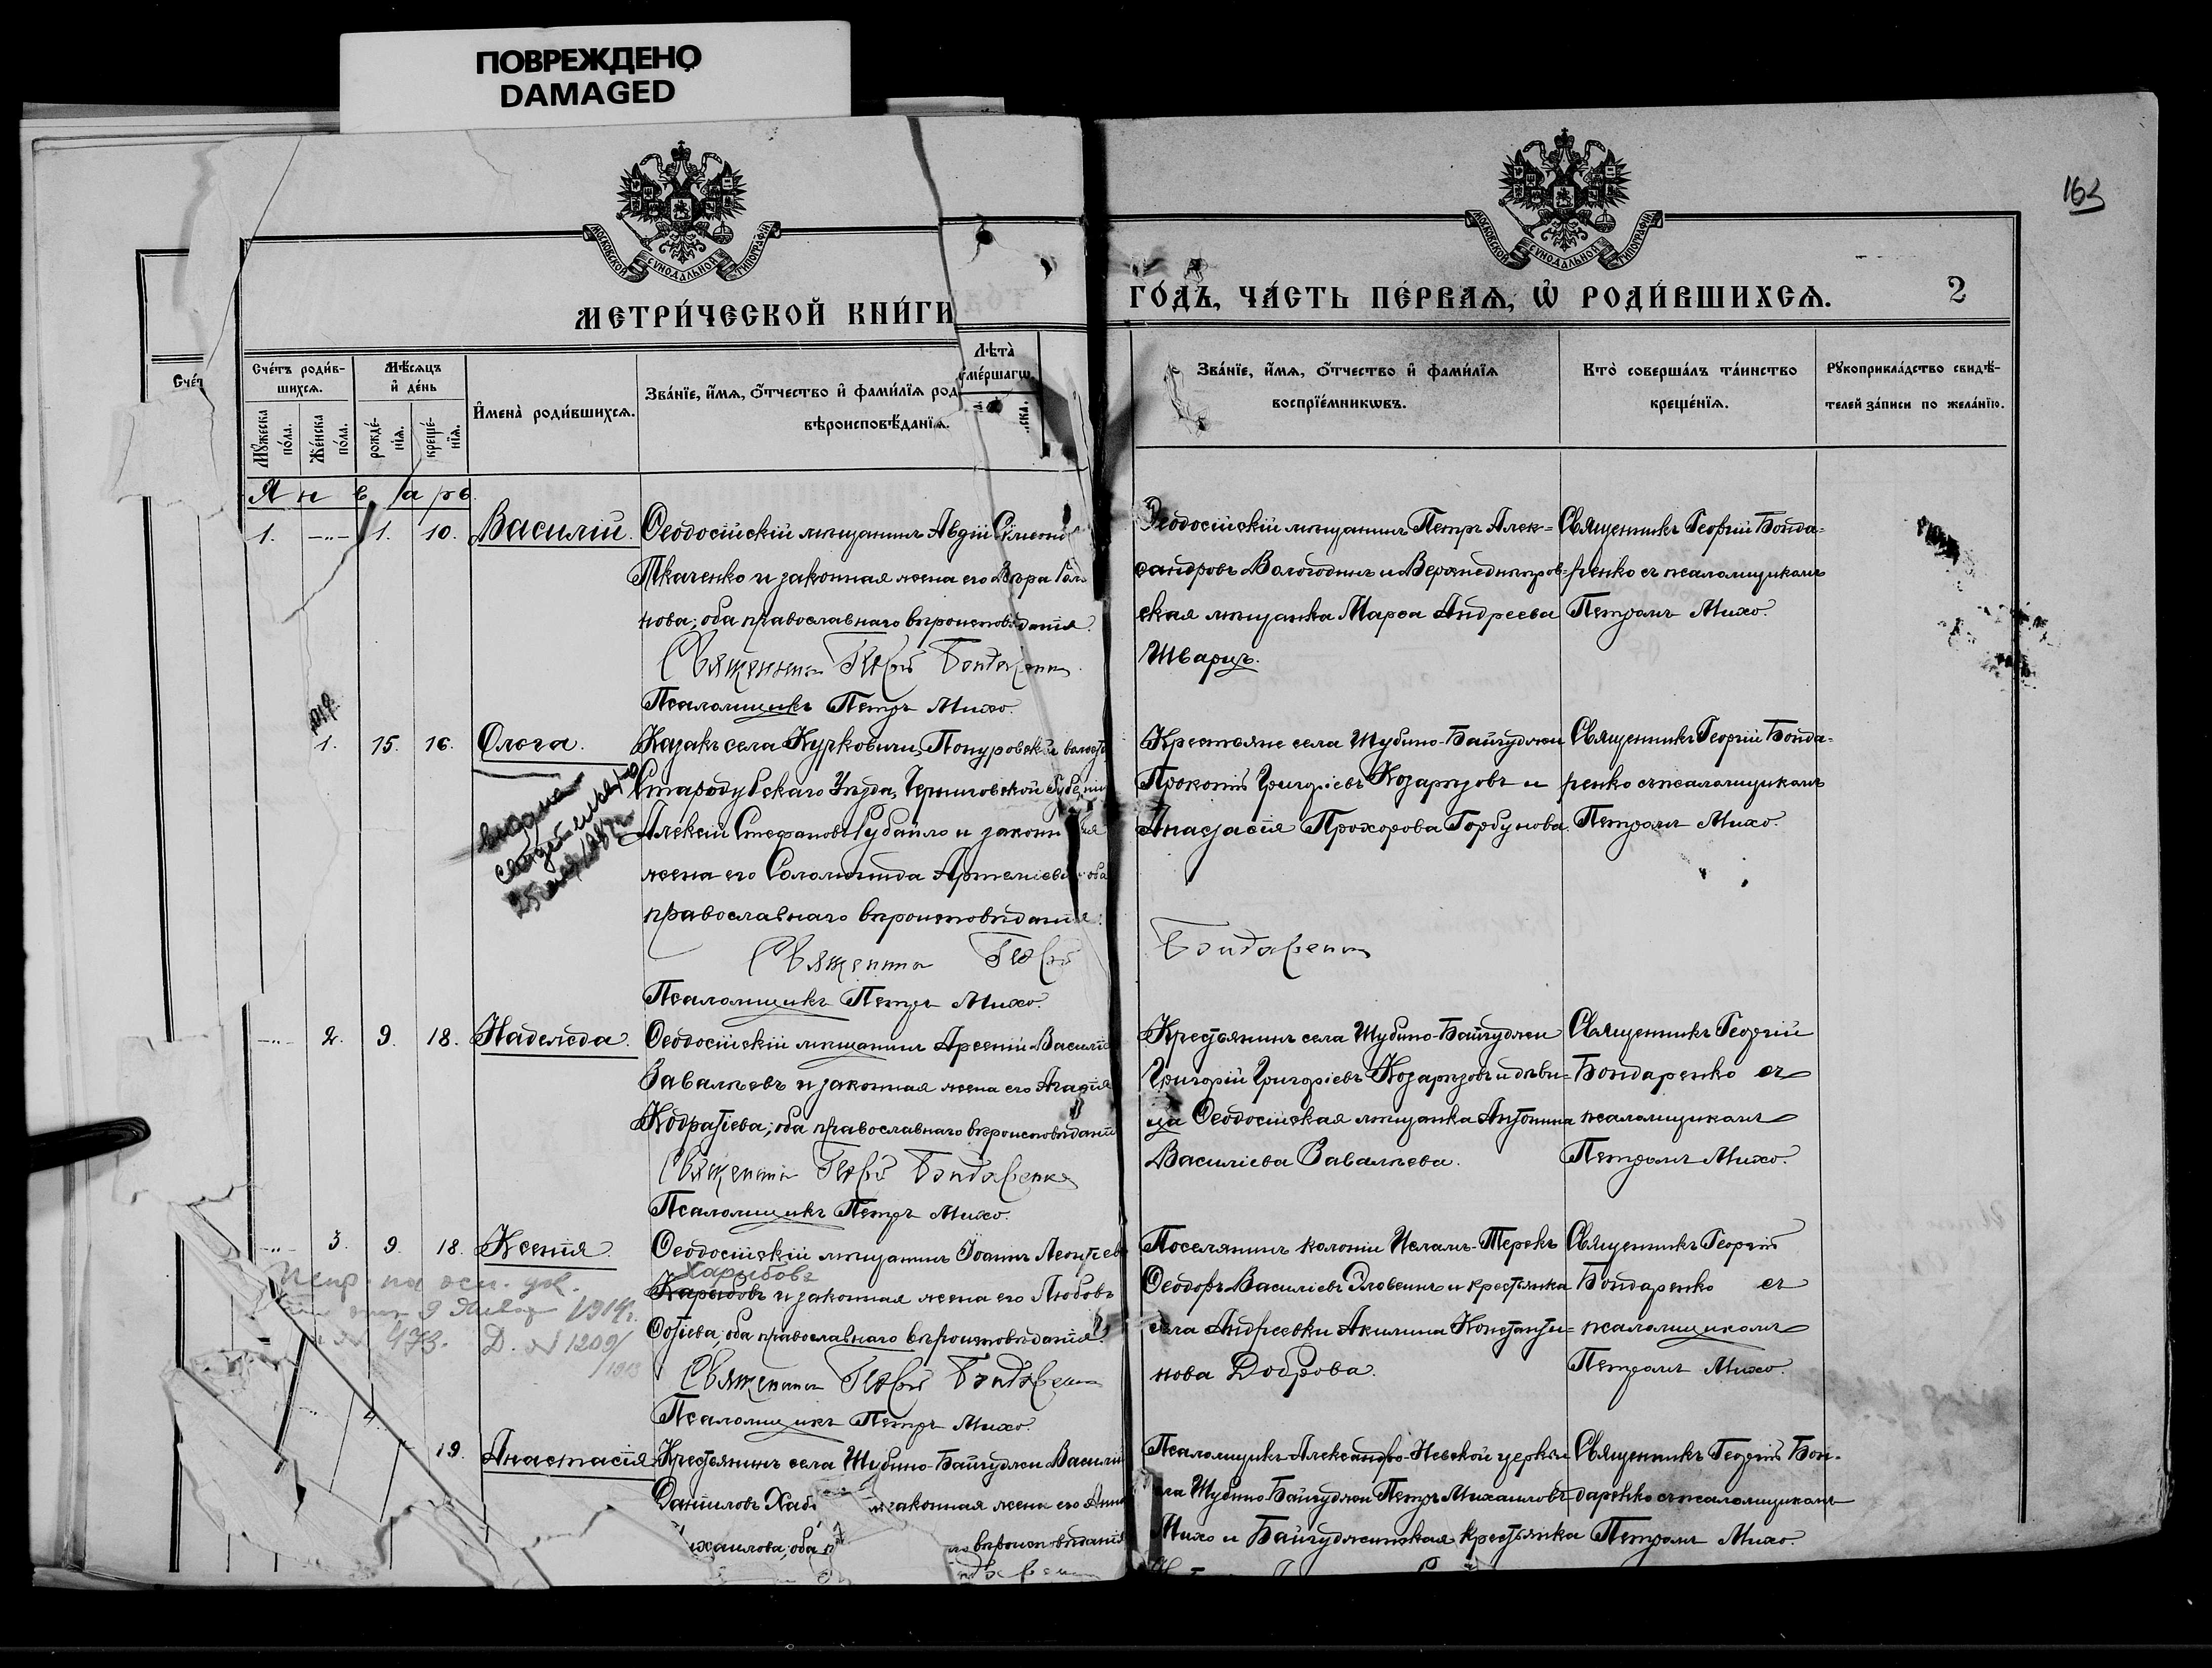 ПОВРЕЖДЕНО
DAMAGED
МОСКОВСКОЙ СѴНОДАЛЬНОЙ ТИПОГРАФІИ
МОСКОВСКОЙ СѴНОДАЛЬНОЙ ТИПОГРАФІИ
163
МЕТРИ́ЧЕСКОЙ КНИ́ГИ
ГО́ДЪ, ЧА́СТЬ ПЕ́РВАѦ, Ѿ РОДИ́ВШИХСѦ.
2
Счет
Сче́тъ роди́в-
шихсѧ.
Мѣ́сѧцъ
и҆ де́нь
Мꙋ́жеска по́ла.
Же́нска по́ла.
рожде́-
нїѧ.
креще́-
нїѧ.
И҆мена̀ роди́вшихсѧ.
Зва́нїе, и҆́мѧ, ѻ҆́тчество и҆ фами́лїѧ род
вѣроисповѣ́данїѧ.
Лѣта̀
ᲂуме́ршагѡ.
Зва́нїе, и҆́мѧ, ѻ҆́тчество и҆ фами́лїѧ
воспрїе́мникѡвъ.
Кто̀ соверша́лъ та́инство
креще́нїѧ.
Рꙋкоприкла́дство свидѣ́-
телей за́писи по жела́нїю.
Январь
1. 1. 10. Василій.
Ѳеодосійскій мѣщанинъ Авдій
Ткаченко и законная жена его Вѣра
нова; оба православнаго вѣроисповѣданія.
Священникъ Георгій Бондаренко
Псаломщикъ Петръ Михо.
Ѳеодосійскій мѣщанинъ Петръ Алек-
сандровъ Вологодинъ и Верхнеднѣпров-
ская мѣщанка Марѳа Андреева
Шварцъ.
Священникъ Георгій Бонда-
ренко съ псаломщикомъ
Петромъ Михо.
1. 15. 16. Ольга.
выдана
Казакъ села Курковичи, Понуровской волости
Стародубскаго Уѣзда, Черниговской Губерніи
Алексій Стефановъ Губайло и законная
жена его Соломонида Артеміева оба
православнаго вѣроисповѣданія.
Священникъ Георгій
Бондаренко
Псаломщикъ Петръ Михо.
Крестьяне села Шубино-Байгуджи
Прокопій Григоріевъ Козарезовъ и
Анастасія Прохорова Горбунова.
Священникъ Георгій Бонда-
ренко съ псаломщикомъ
Петромъ Михо.
2. 9. 18. Надежда.
Ѳеодосійскій мѣщанинъ Арсеній Василіе
Завалѣевъ и законная жена его Агафія
Кодратіева; оба православнаго вѣроисповѣданія
Священникъ Георгій Бондаренко
Псаломщикъ Петръ Михо.
Крестьянинъ села Шубино-Байгуджи
Григорій Григоріевъ Козарезовъ и дѣви-
ца Ѳеодосійская мѣщанка Антонина
Василіева Завалѣева.
Священникъ Георгій
Бондаренко съ
псаломщикомъ
Петромъ Михо.
3. 9. 18. Ксенія.
Ѳеодосійскій мѣщанинъ Іоаннъ Леонтіевъ
Харыбовъ
Карыбовъ и законная жена его Любовь
Фотіева; оба православнаго вѣроисповѣданія.
Священникъ Георгій Бондаренко
Псаломщикъ Петръ Михо.
9 Января 1914 г.
473. Д. № 1209/1913
Поселянинъ колоніи Исламъ-Терекъ
Ѳеодоръ Василіевъ и крестьянка
села Андреевки Акилина Константи-
нова Доброва.
Священникъ Георгій
Бондаренко съ
псаломщикомъ
Петромъ Михо.
4. 19. Анастасія
Крестьянинъ села Шубино-Байгуджи Василій
Даниловъ Хаб законная жена его Анна
ихаилова; оба п вѣроисповѣданія
Псаломщикъ Александро-Невской церкви
ла Шубино Байгуджи Петръ Михаиловъ
Михо и Байгуджинская крестьянка
Священникъ Георгій Бон-
даренко съ псаломщикомъ
Петромъ Михо.